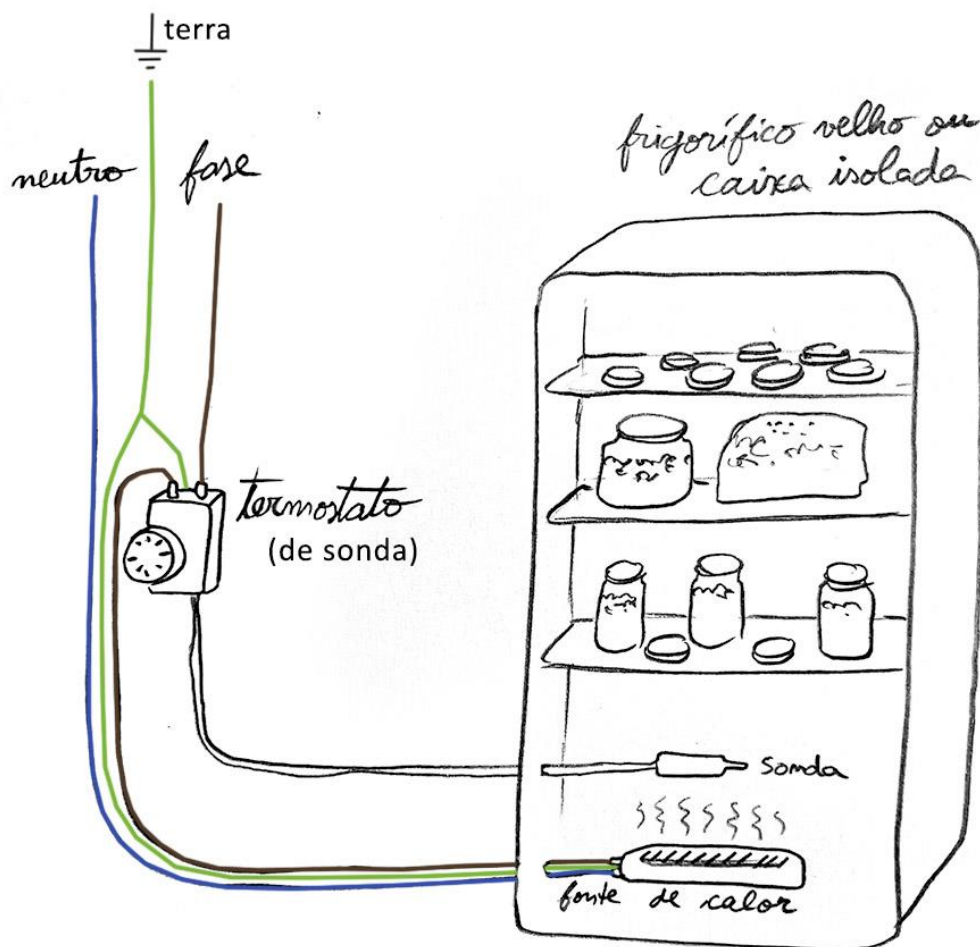 terra
neutro
fase
frigorífico velho ou
caixa isolada
termostato
(de sonda)
sonda
fonte de calor